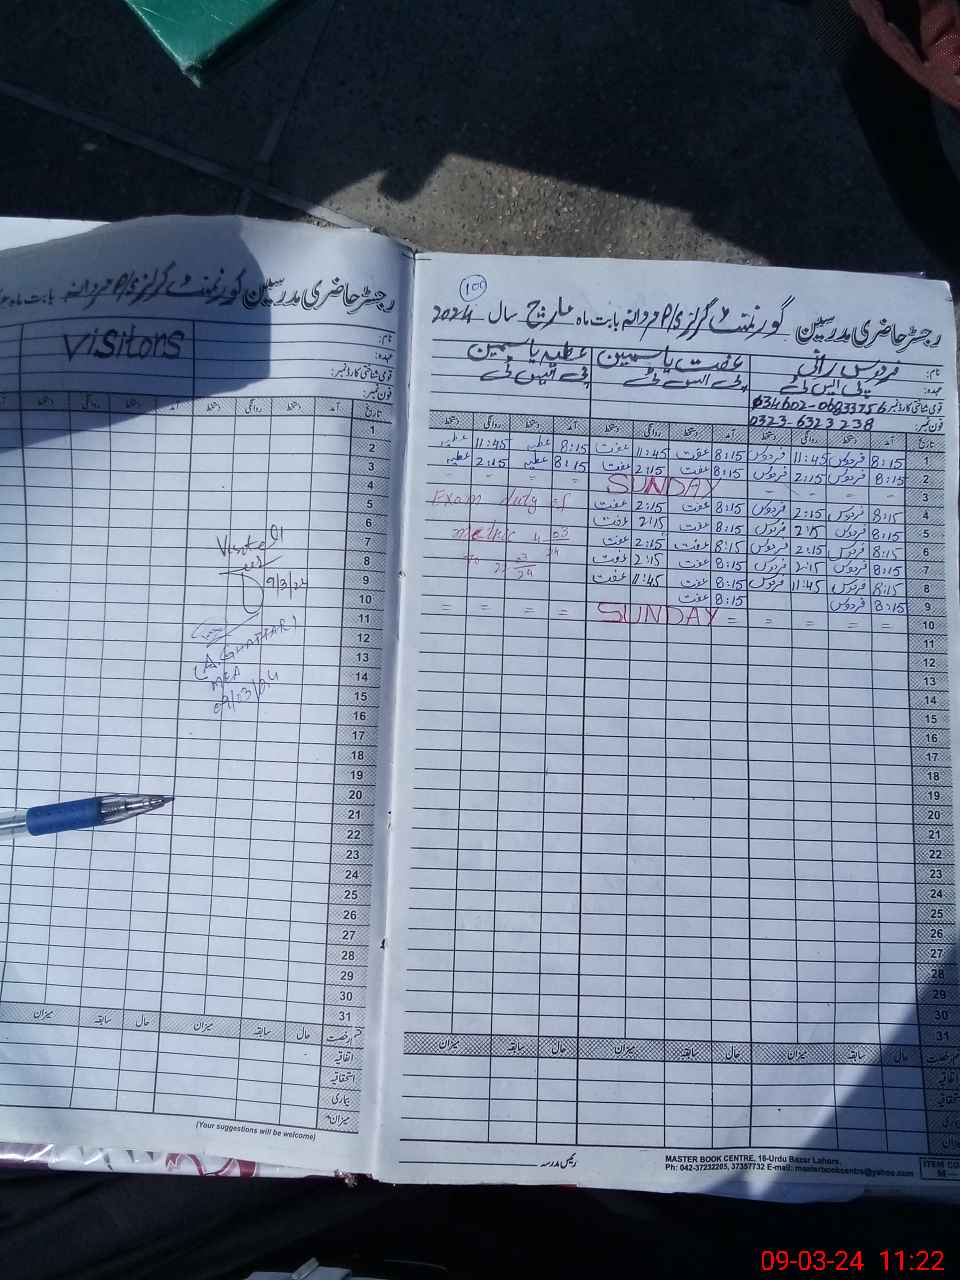 رجسٹر حاضری مدرسین گورنمنٹ گرلز P/S مردانہ بابت ماہ
visitors
نام:
عہدہ:
قومی شناختی کارڈ نمبر:
فون نمبر:
تاریخ آمد دستخط روانگی دستخط آمد دستخط روانگی دستخط
1
2
3
4
5
6
7
8
9
10
11
12
13
14
15
16
17
18
19
20
21
22
23
24
25
26
27
28
29
30
31
Visited
9/3/24
(A. GHAFFAR)
MEA
09/03/24
قسم رخصت حال سابقہ میزان حال سابقہ میزان
اتفاقیہ
استحقاقیہ
بیماری
میزان
(Your suggestions will be welcome)
100
رجسٹر حاضری مدرسین گورنمنٹ گرلز P/S مردانہ بابت ماہ مارچ سال 2024
نام: فردوس رانی عفت یاسمین عطیہ یاسمین
عہدہ: پی ایس ٹی پی ایس ٹی پی ایس ٹی
قومی شناختی کارڈ نمبر
فون نمبر: 0323-6323238
تاریخ آمد دستخط روانگی دستخط آمد دستخط روانگی دستخط آمد دستخط روانگی دستخط
1 8:15 فردوس 11:45 فردوس 8:15 عفت 11:45 عفت 8:15 عطیہ 11:45 عطیہ
2 8:15 فردوس 2:15 فردوس 8:15 عفت 2:15 عفت 8:15 عطیہ 2:15 عطیہ
3 SUNDAY
4 8:15 فردوس 2:15 فردوس 8:15 عفت 2:15 عفت Exam duty of
5 8:15 فردوس 2:15 فردوس 8:15 عفت 2:15 عفت
6 8:15 فردوس 2:15 فردوس 8:15 عفت 2:15 عفت
7 8:15 فردوس 2:15 فردوس 8:15 عفت 2:15 عفت
8 8:15 فردوس 11:45 فردوس 8:15 عفت 11:45 عفت
9 8:15 فردوس 8:15 عفت
10 = = = = SUNDAY = = = =
11
12
13
14
15
16
17
18
19
20
21
22
23
24
25
26
27
28
29
30
31
حال سابقہ میزان حال سابقہ میزان حال سابقہ میزان
رئیس مدرسہ
MASTER BOOK CENTRE, 16-Urdu Bazar Lahore.
Ph: 042-37232205, 37357732 E-mail: masterbookcentre@yahoo.com
ITEM CO
09-03-24 11:22